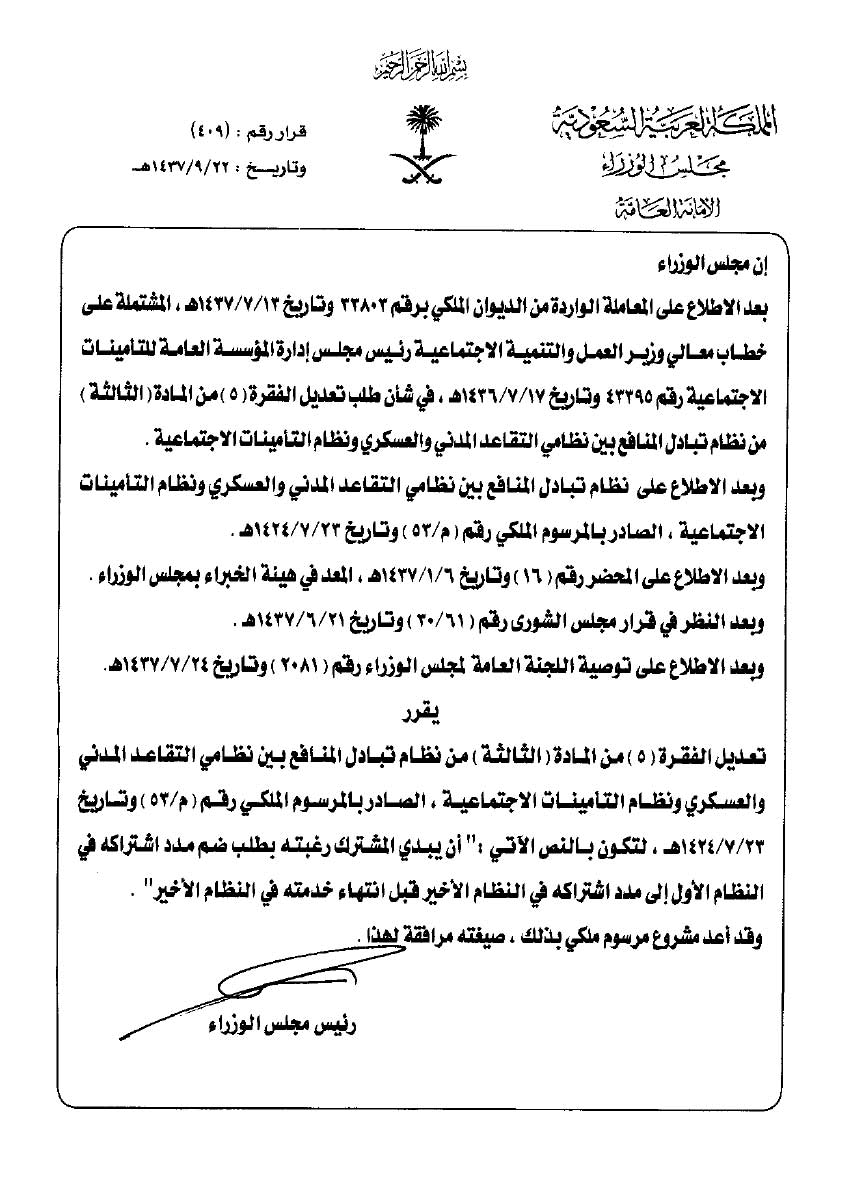 بسم الله الرحمن الرحيم
المملكة العربية السعودية
مجلس الوزراء
الأمانة العامة
قرار رقم : (٤٠٩)
وتاريخ : ١٤٣٧/٩/٢٢هـ
إن مجلس الوزراء
بعد الاطلاع على المعاملة الواردة من الديوان الملكي برقم ٣٣٨٠٣ وتاريخ ١٤٣٧/٧/١٣هـ ، المشتملة على
خطاب معالي وزير العمل والتنمية الاجتماعية رئيس مجلس إدارة المؤسسة العامة للتأمينات
الاجتماعية رقم ٤٣٣٩٥ وتاريخ ١٤٣٦/٧/١٧هـ ، في شأن طلب تعديل الفقرة (٥) من المادة (الثالثة)
من نظام تبادل المنافع بين نظامي التقاعد المدني والعسكري ونظام التأمينات الاجتماعية .
وبعد الاطلاع على نظام تبادل المنافع بين نظامي التقاعد المدني والعسكري ونظام التأمينات
الاجتماعية ، الصادر بالمرسوم الملكي رقم (م/٥٣) وتاريخ ١٤٢٤/٧/٢٣هـ .
وبعد الاطلاع على المحضر رقم (١٦) وتاريخ ١٤٣٧/١/٦هـ ، المعد في هيئة الخبراء بمجلس الوزراء .
وبعد النظر في قرار مجلس الشورى رقم (٣٠/٦١) وتاريخ ١٤٣٧/٦/٢١هـ .
وبعد الاطلاع على توصية اللجنة العامة لمجلس الوزراء رقم (٢٠٨١) وتاريخ ١٤٣٧/٧/٢٤هـ.
يقرر
تعديل الفقرة (٥) من المادة (الثالثة) من نظام تبادل المنافع بين نظامي التقاعد المدني
والعسكري ونظام التأمينات الاجتماعية ، الصادر بالمرسوم الملكي رقم (م/٥٣) وتاريخ
١٤٢٤/٧/٢٣هـ ، لتكون بالنص الآتي :" أن يبدي المشترك رغبته بطلب ضم مدد اشتراكه في
النظام الأول إلى مدد اشتراكه في النظام الأخير قبل انتهاء خدمته في النظام الأخير" .
وقد أعد مشروع مرسوم ملكي بذلك ، صيغته مرافقة لهذا .
رئيس مجلس الوزراء